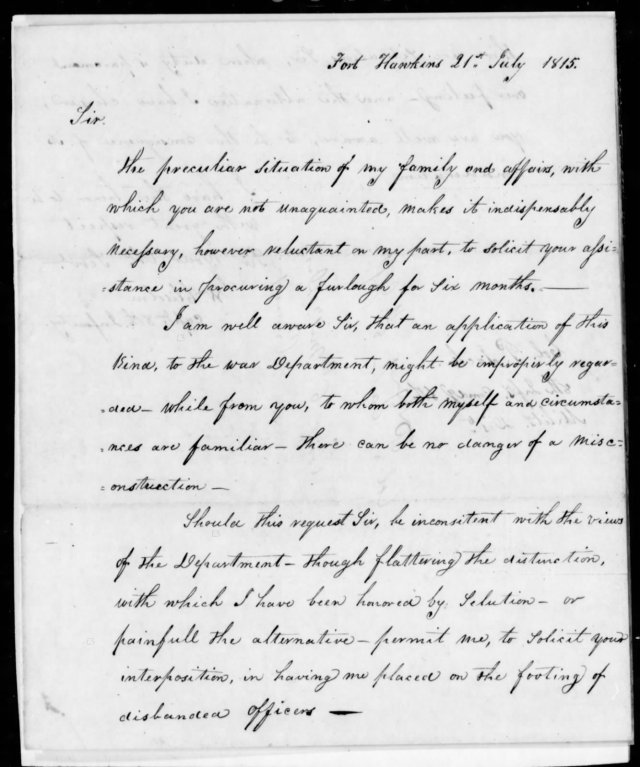 Fort Hawkins 21st July 1815.
Sir
The preculiar situation of my family and affairs, with
which you are not unaquainted, makes it indispensably
necessary, however reluctant on my part, to solicit your assi-
-stance in procuring a furlough for Six months. —
I am well aware Sir, that an application of this
Kind, to the war Department, might be improperly regar-
-ded — while from you, to whom both myself and circumsta-
-nces are familiar — there can be no danger of a misc-
-onstruction —
Should this request Sir, be inconsitent with the views
of the Department — though flattering the distinction,
with which I have been honored by Selution — or
painfull the alternative — permit me, to Solicit your
interposition, in having me placed on the footing of
disbanded officers —